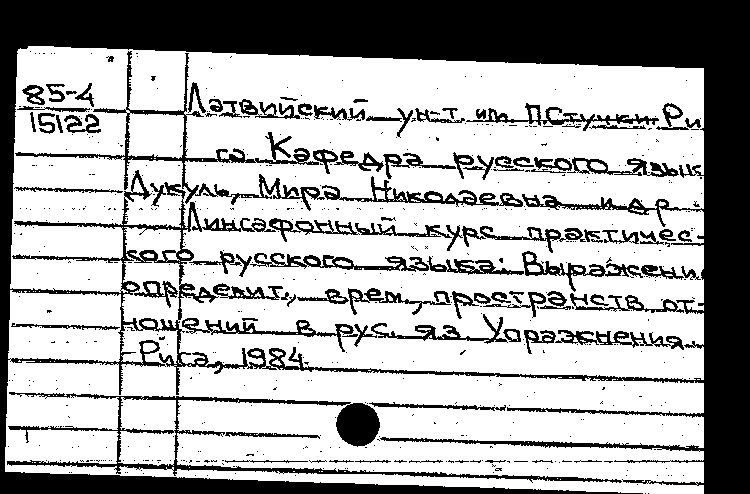 85-4
15122
Латвийский ун-т им. П.Стучки. Ри
га. Кафедра русского язык
Дукуль, Мира Николаевна и др.
Лингафонный курс практичес-
кого русского языка: Выражени
определит., врем., пространств. от-
ношений в рус. яз. Упражнения.
-Рига, 1984.